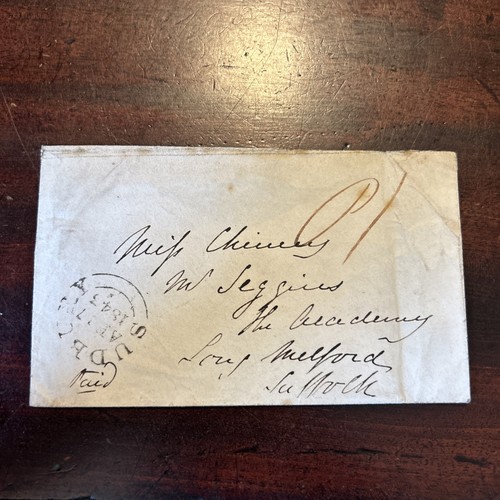 P1
Miss Chinery
Mr Seggins
The Academy
Long Melford
Suffolk
Paid
SUDBURY
AP 17
1843